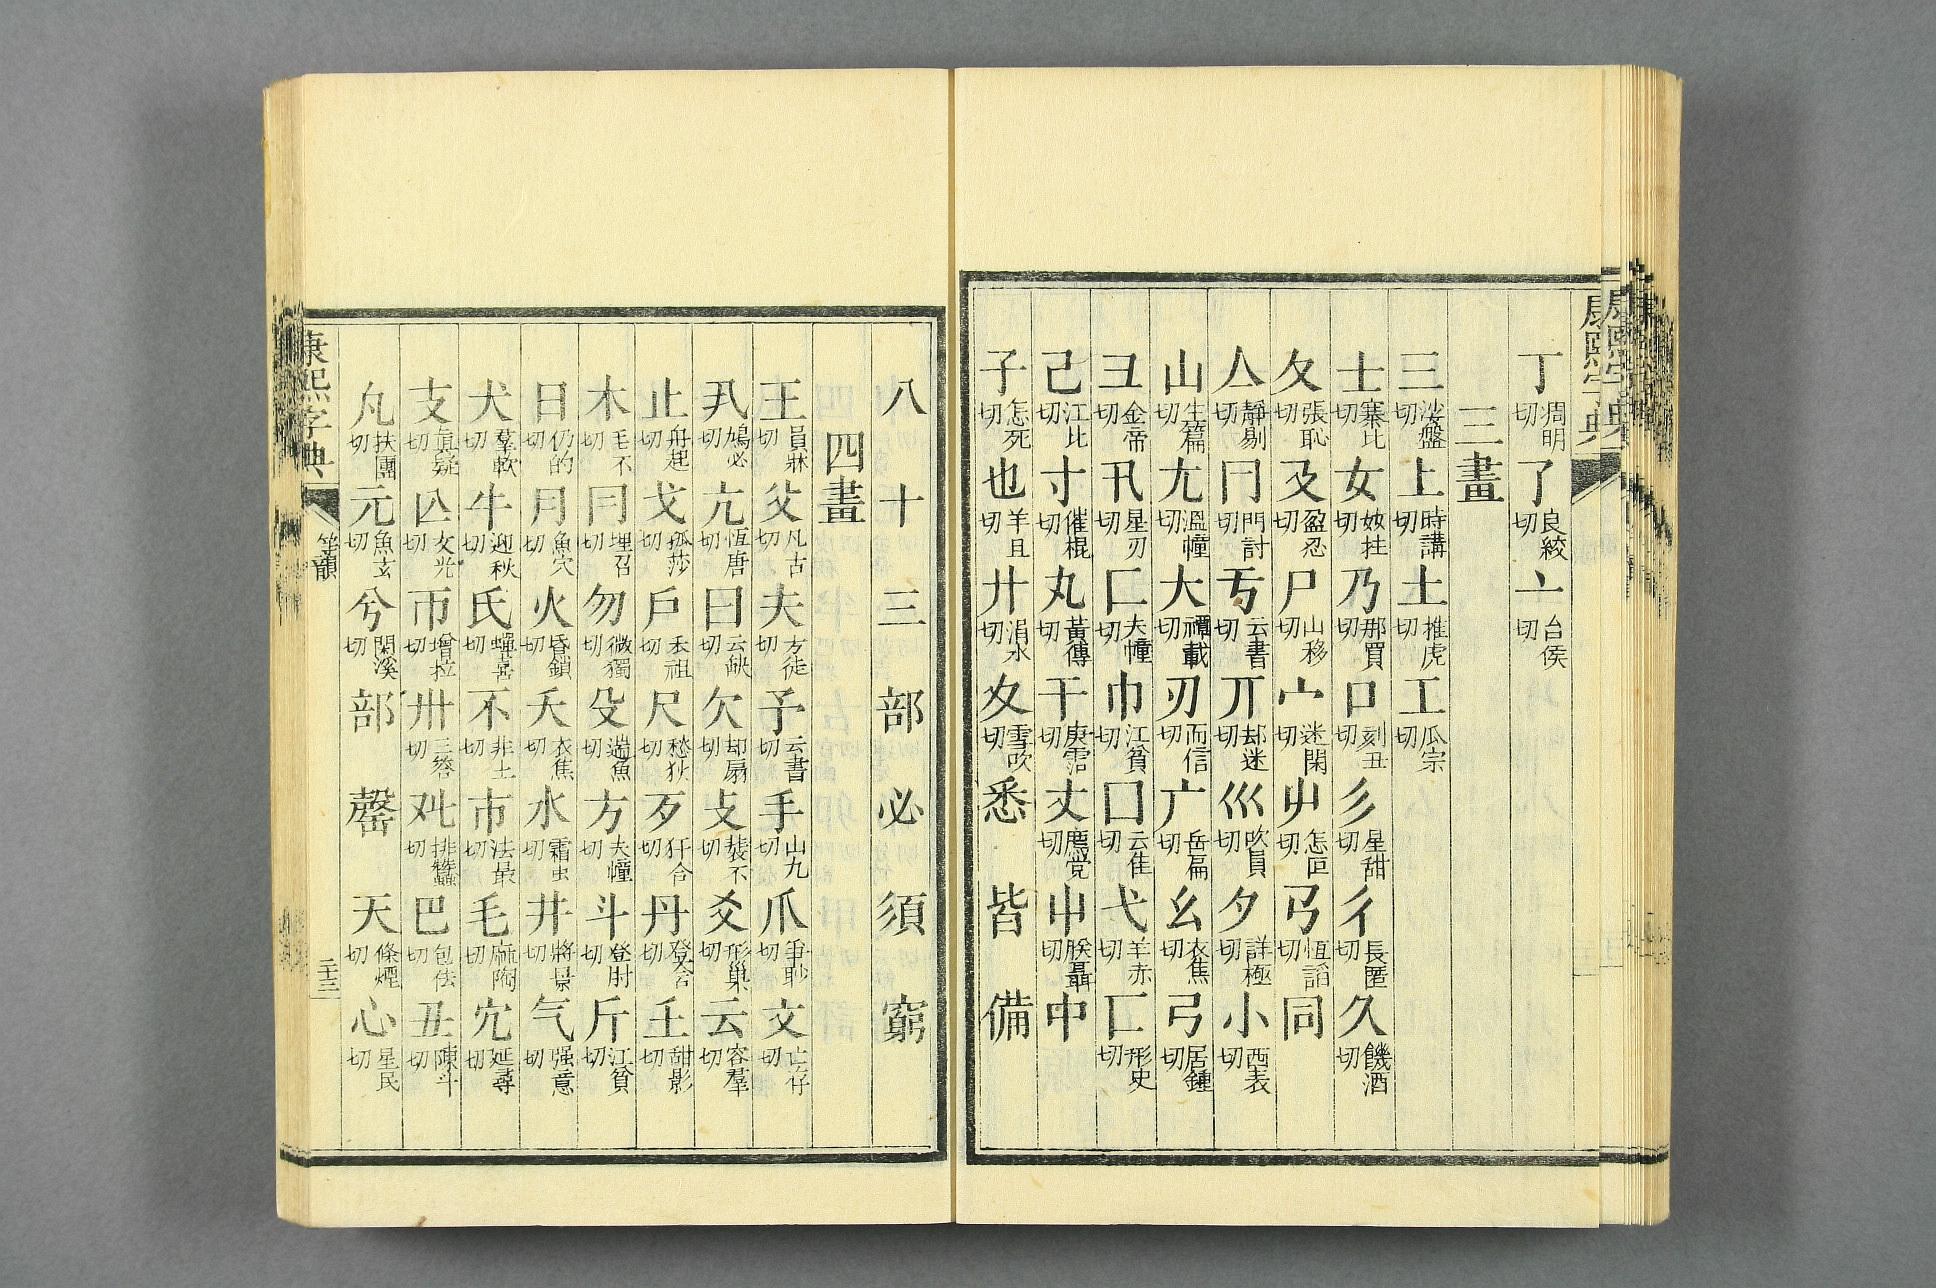 康熙字典
丁 猾明切 了 良絞切 亠 台侯切
三畫
三 切 上 時講切 土 推虎切 工 瓜宗切
士 寨比切 女 切 乃 那買切 口 刻丑切 彡 星甜切 彳 長匿切 久 饑酒切
夂 張恥切 及 盈忍切 尸 山移切 宀 迷閑切 屮 怎叵切 弓 恆謟切 同
亼 靜剔切 冂 門討切 亐 云書切 丌 却迷切 巛 吹員切 夕 詳極切 小 西表切
山 生篇切 尢 溫幢切 大 禫載切 刃 而信切 广 岳扁切 幺 衣焦切 弓 居鍾切
彐 金帝切 卂 星刃切 匚 夫幢切 巾 江貧切 囗 云隹切 弋 羊赤切 匸 形史切
己 江比切 寸 催棍切 丸 黃傳切 干 庚霑切 丈 切 屮 切 中
子 怎死切 也 羊且切 廾 涓水切 夊 雪吹切 悉 皆 備
八十三部必須窮
四畫
王 員牀切 父 凡古切 夫 方徒切 予 云書切 手 山九切 爪 爭耖切 文 亡存切
爿 切 亢 恆唐切 曰 云缺切 欠 却扇切 攴 裝不切 爻 形巢切 云 容羣切
止 舟起切 戈 孤莎切 戶 禾祖切 尺 愁狄切 歹 犴合切 丹 登含切 壬 甜影切
木 毛不切 冃 埋召切 勿 微獨切 殳 遄魚切 方 夫幢切 斗 登肘切 斤 江貧切
日 仍的切 月 魚穴切 火 昏鎖切 夭 衣焦切 水 霜虫切 井 將景切 气 强意切
犬 羣軟切 牛 迎秋切 氏 切 不 非土切 巿 法最切 毛 麻陶切 冘 延尋切
支 眞疑切 亾 文光切 帀 增拉切 卅 三答切 切 巴 包佉切 丑 陳斗切
凡 扶團切 元 魚玄切 兮 閑溪切 部 罄 天 條煙切 心 星民切
康熙字典 等韻 二十三